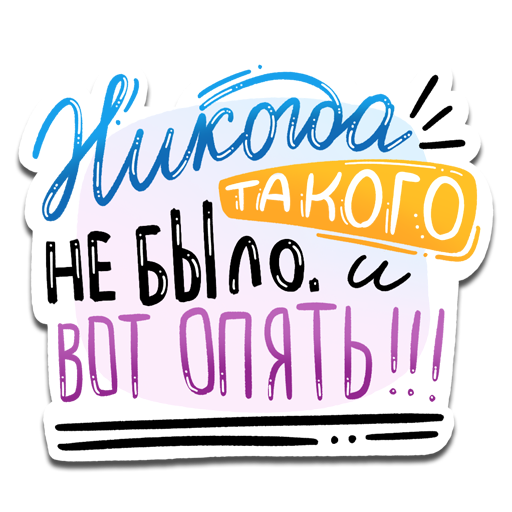 Никогда
ТАКОГО
НЕ БЫЛО. и
ВОТ ОПЯТЬ!!!